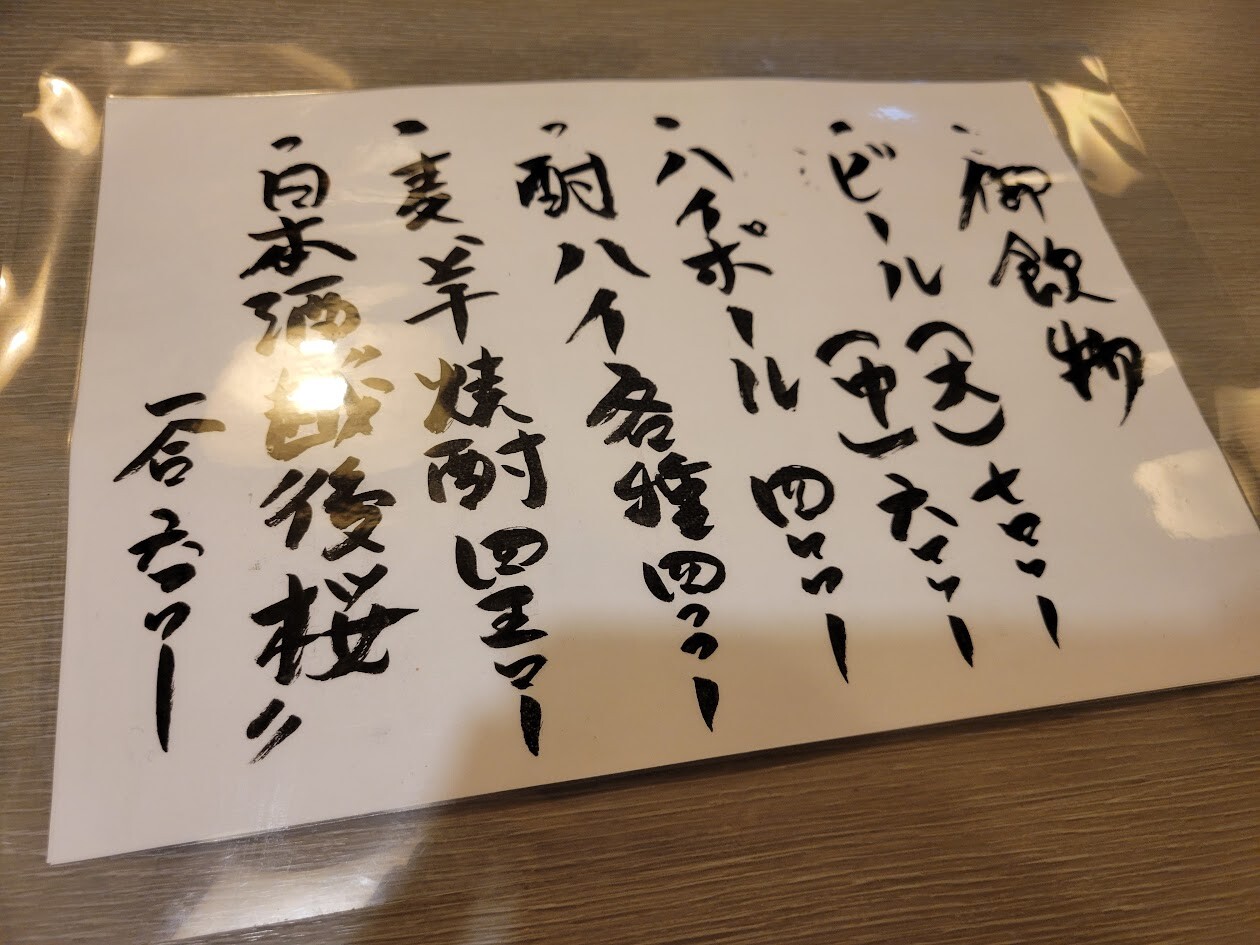 一御飲物
一ビール(大)七〇〇ー
(中)六〇〇ー
一ハイボール 四〇〇ー
一酎ハイ各種四〇〇ー
一麦芋焼酎四五〇ー
一日本酒越後桜〃
一合 五〇〇ー